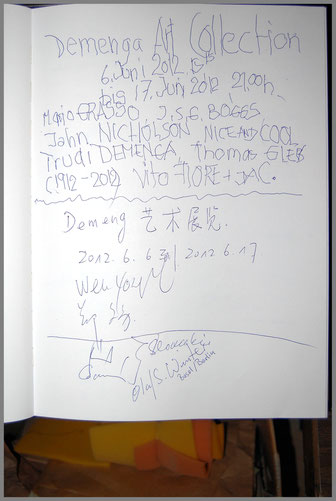 Demenga Art Collection
6. Juni 2012 BIS
bis 17. Juni 2012 21.00h.
Mario GRASSO J.S.G. BOGGS
John NICHOLSON NICE AND COOL
Trudi DEMENGA, Thomas GLEB
(1912-2012) Vito FIORE + JAC.
Demeng 艺术展览.
2012. 6. 6 到 2012. 6. 17.
Wen You
Olaf S.
Basel/Berlin